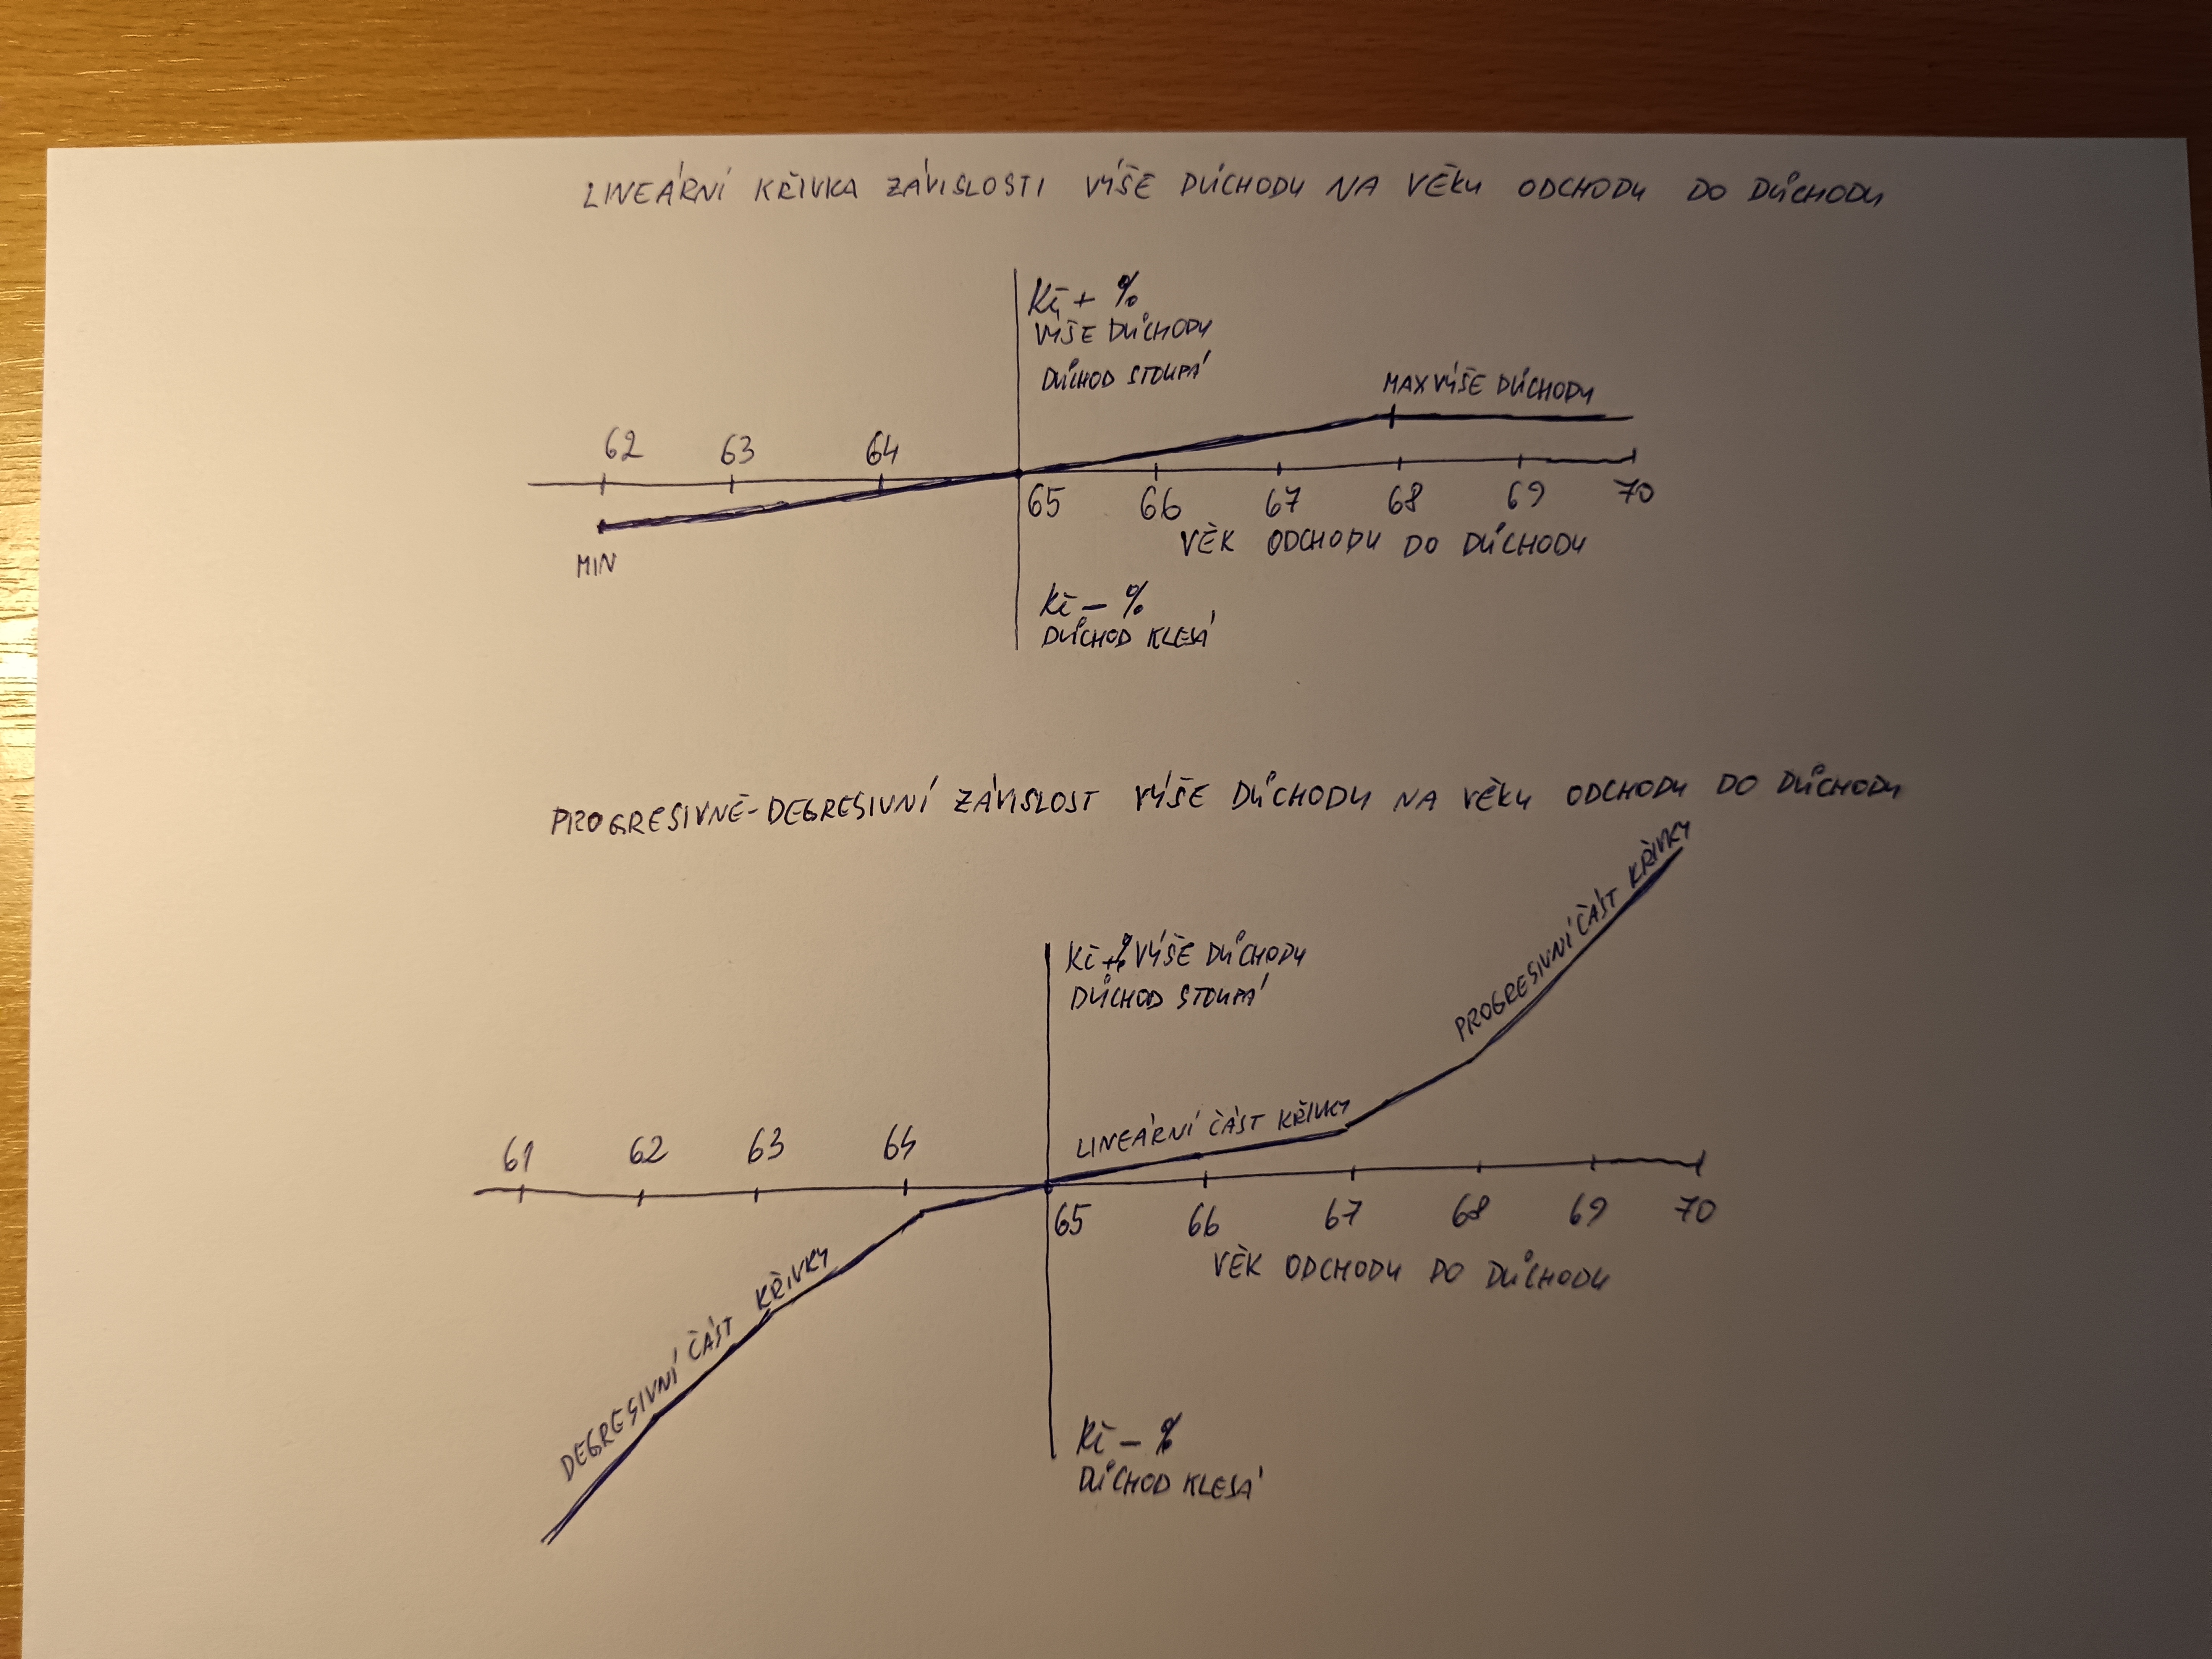 LINEÁRNÍ KŘIVKA ZÁVISLOSTI VÝŠE DŮCHODU NA VĚKU ODCHODU DO DŮCHODU
Kč + %
VÝŠE DŮCHODU
DŮCHOD STOUPÁ
MAX VÝŠE DŮCHODU
62 63 64
65 66 67 68 69 70
VĚK ODCHODU DO DŮCHODU
MIN
Kč - %
DŮCHOD KLESÁ
PROGRESIVNĚ-DEGRESIVNÍ ZÁVISLOST VÝŠE DŮCHODU NA VĚKU ODCHODU DO DŮCHODU
Kč +% VÝŠE DŮCHODU
DŮCHOD STOUPÁ
PROGRESIVNÍ ČÁST KŘIVKY
LINEÁRNÍ ČÁST KŘIVKY
61 62 63 64
65 66 67 68 69 70
VĚK ODCHODU DO DŮCHODU
DEGRESIVNÍ ČÁST KŘIVKY
Kč - %
DŮCHOD KLESÁ